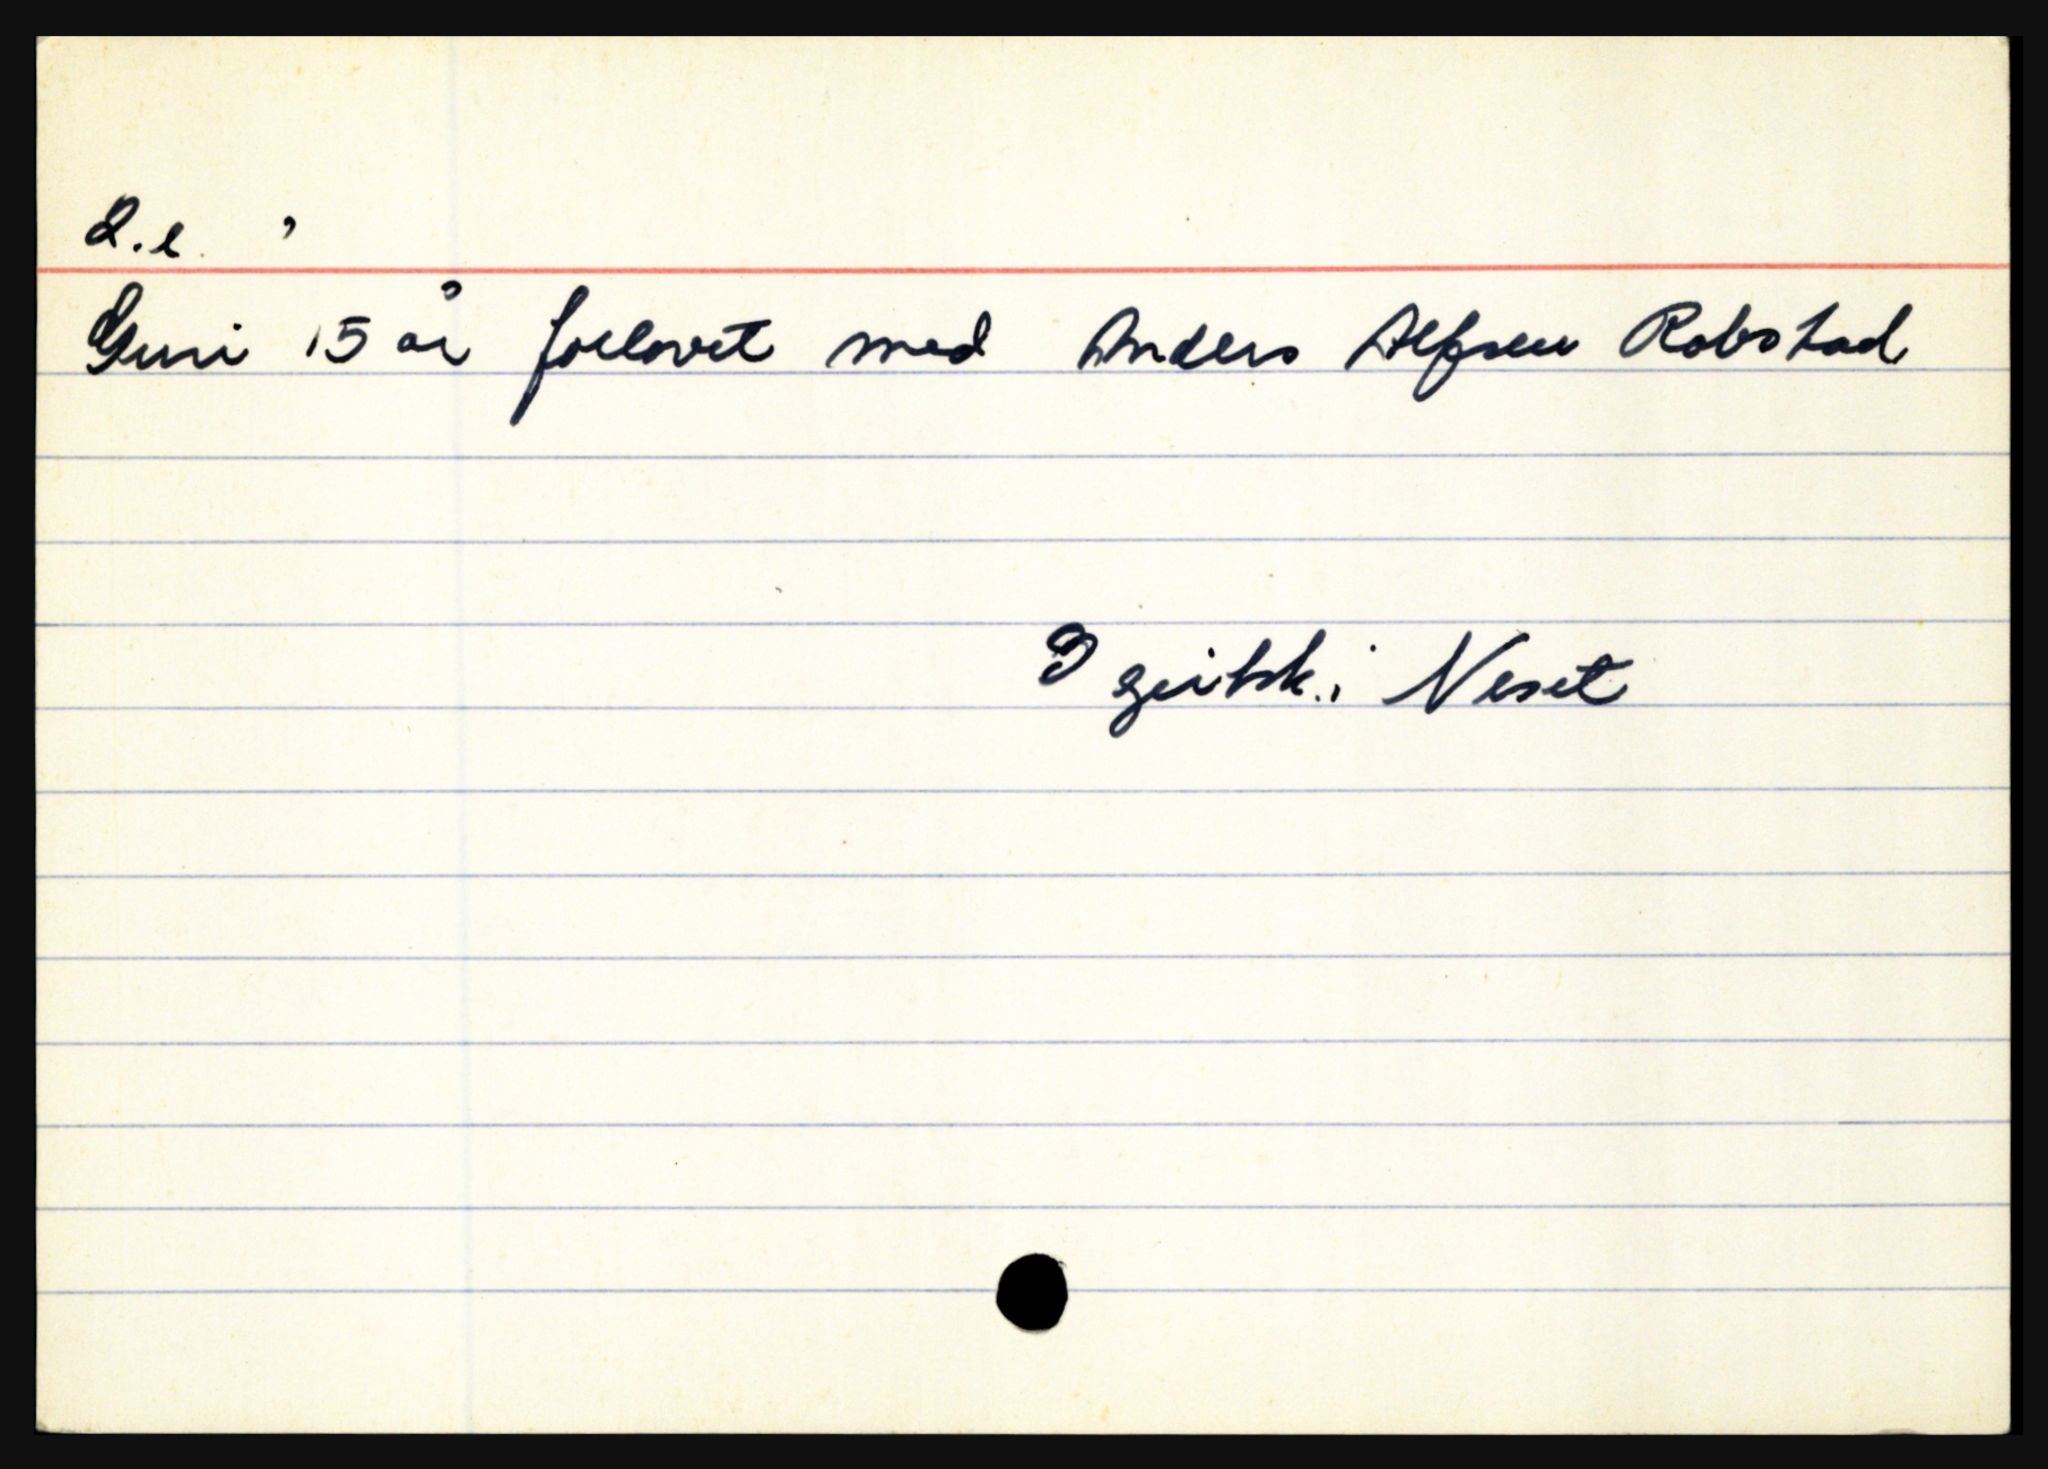 2.e.
Guri 15 år forlovet med Anders Alfsen Robstad
I geistsk. i Neset